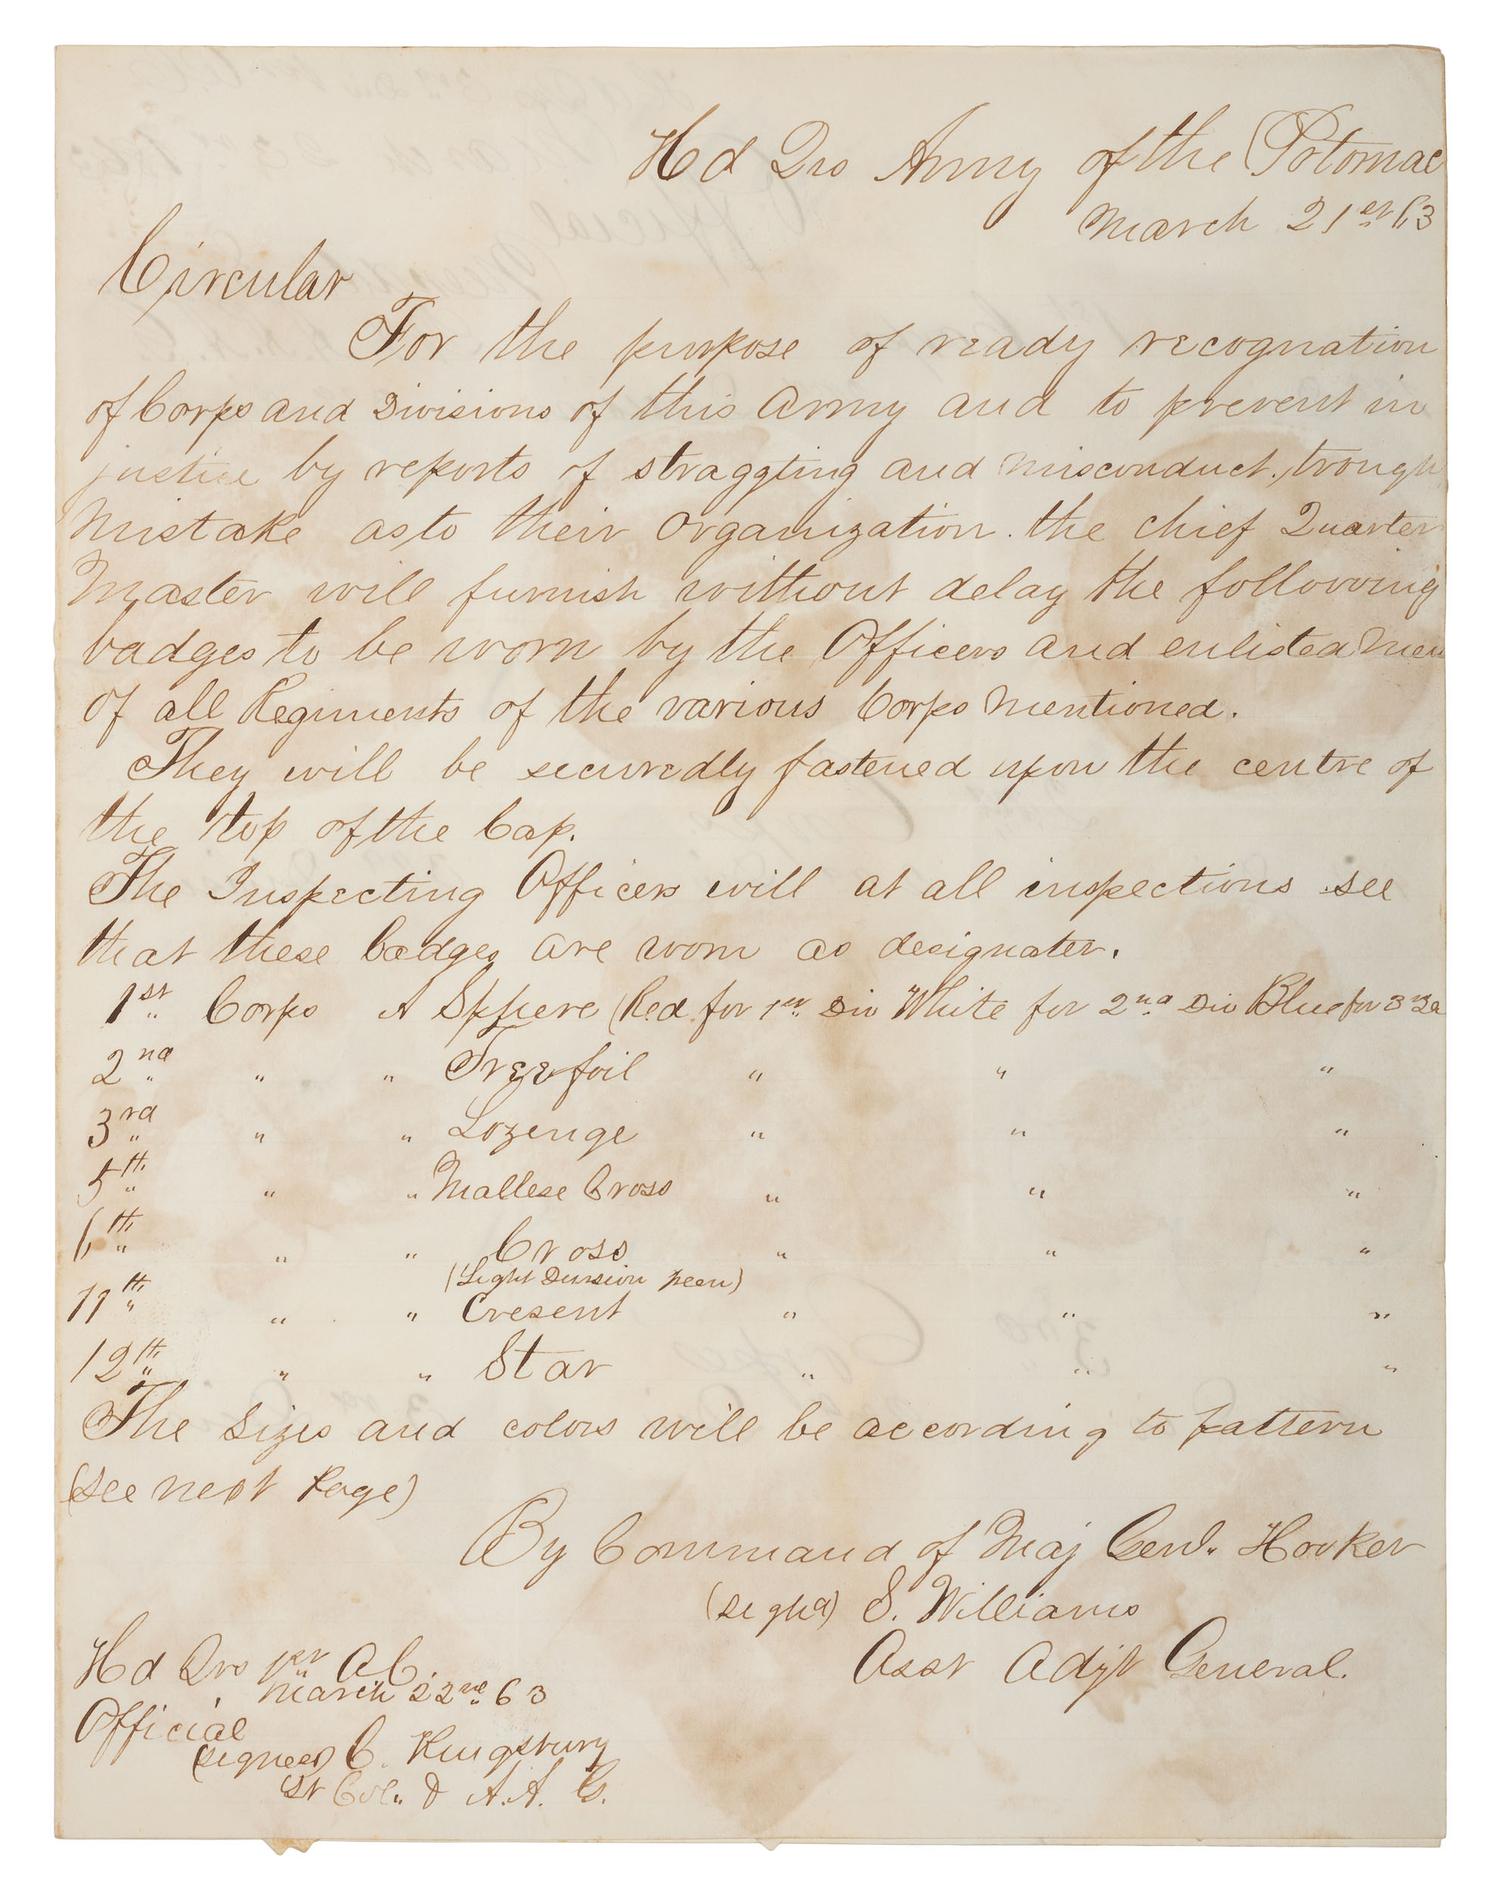 Hd Qrs Army of the Potomac
March 21st 63
Circular
For the purpose of ready recognation
of Corps and Divisions of this Army and to prevent in
justice by reports of straggling and misconduct, trough
Mistake as to their Organization. the chief Quarter
Master will furnish without delay the following
badges to be worn by the Officers and enlisted Men
Of all Regiments of the various Corps Mentioned.
They will be securedly fastened upon the centre of
the top of the Cap.
The Inspecting Officers will at all inspections see
that these badges are worn as designater.
1st Corps A Sphere (Red for 1st Div White for 2nd Div Blue for 3rd
2nd " " Treefoil " " "
3rd " " Lozenge " " "
5th " " Maltese Cross " " "
6th " " Cross " " "
(Light Division
11th " " Cresent " " "
12th " " Star " " "
The Sizes and colors will be according to pattern
(see next Page)
By Command of Maj Genl. Hooker
(signd) S. Williams
Asst Adjt General.
Hd Qrs 1st A C.
March 22nd 63
Official
(signed) C. Kingsbury
Lt Col. & A. A. G.